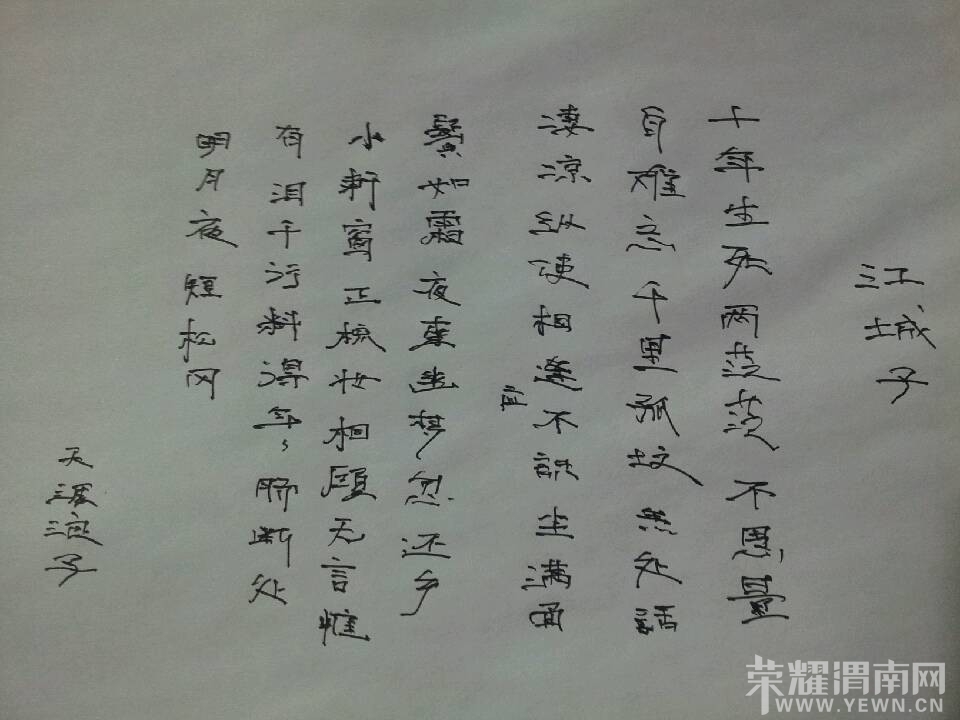 江城子
十年生死两茫茫不思量
自难忘千里孤坟无处话
凄凉纵使相逢不识尘满面
应
鬓如霜夜来幽梦忽还乡
小轩窗正梳妆相顾无言惟
有泪千行料得年、肠断处
明月夜短松冈
天涯浪子
荣耀渭南网
WWW.YEWN.CN